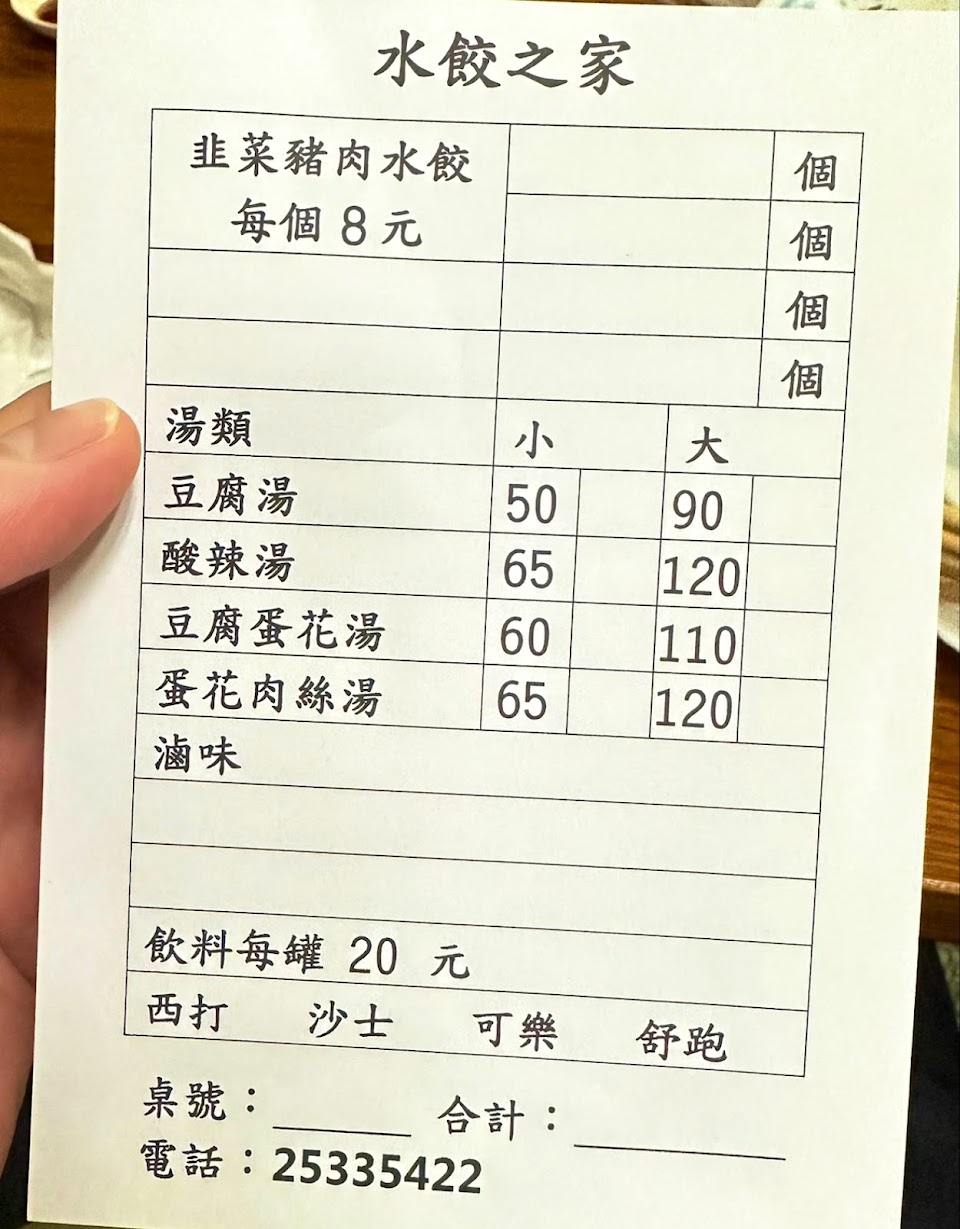 水餃之家
韭菜豬肉水餃 個
每個 8 元 個
個
個
湯類 小 大
豆腐湯 50 90
酸辣湯 65 120
豆腐蛋花湯 60 110
蛋花肉絲湯 65 120
滷味
飲料每罐 20 元
西打 沙士 可樂 舒跑
桌號：_____ 合計：________
電話：25335422